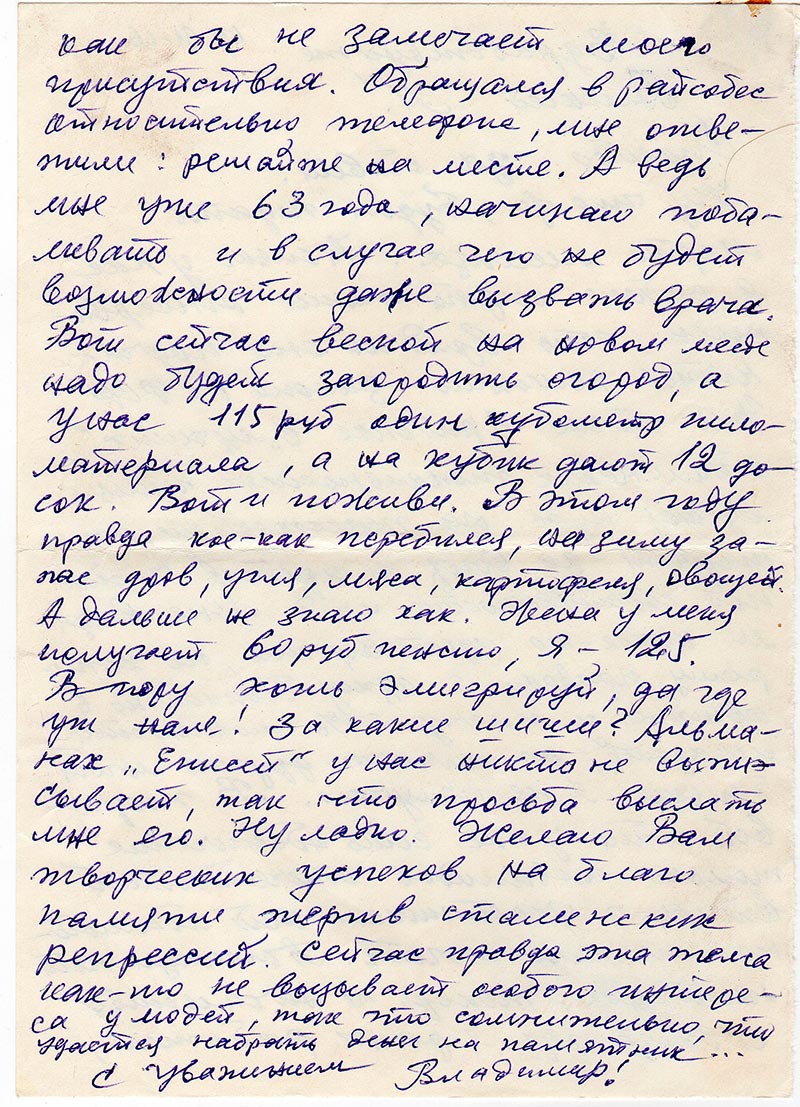 как бы не замечает моего
присутствия. Обращался в райсобес
относительно телефона, мне отве-
тили: решайте на месте. А ведь
мне уже 63 года, начинаю поба-
ливать и в случае чего не будет
возможности даже вызвать врача.
Вот сейчас весной на новом месте
надо будет загородить огород, а
у нас 115 руб один кубометр пило-
материала, а на кубик дают 12 до-
сок. Вот и поживи. В этом году
правда кое-как перебился, на зиму за-
пас дров, угля, мяса, картофеля, овощей.
А дальше не знаю как. Жена у меня
получает 60 руб пенсию, Я - 125.
В пору хоть эмигрируй, да где
уж нам! За какие шиши? Альма-
нах „Енисей“ у нас никто не выпи-
сывает, так что просьба выслать
мне его. Ну ладно. Желаю Вам
творческих успехов на благо
памяти жертв сталинских
репрессий. Сейчас правда эта тема
как-то не вызывает особого интере-
са у людей, так что сомнительно, что
удастся набрать денег на памятник...
С уважением Владимир!